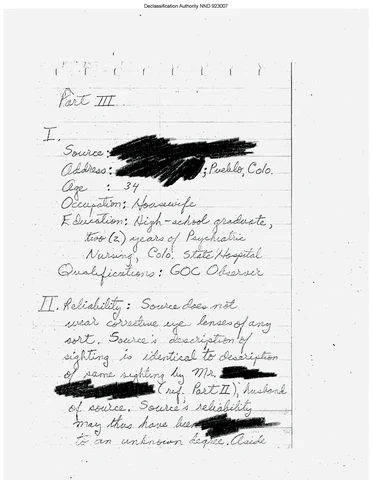 Declassification Authority NND 923007
Part III
I.
Source:
Address: ; Pueblo, Colo.
Age : 34
Occupation: Housewife
Education: High-school graduate,
two (2) years of Psychiatric
Nursing, Colo. State Hospital
Qualifications: GOC Observer
II. Reliability: Source does not
wear corrective eye lenses of any
sort. Source's description of
sighting is identical to description
of same sighting by Mr.
(ref. Part II), husband
of source. Source's reliability
may thus have been
to an unknown degree. Aside